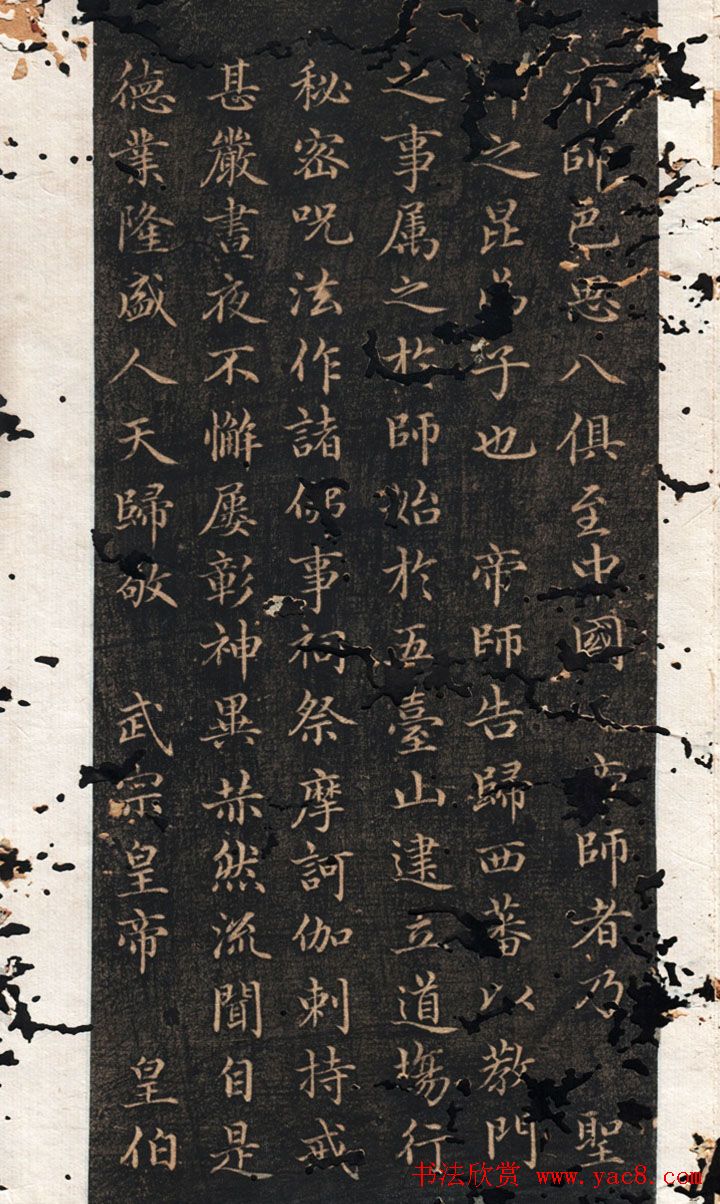 帝師巴思八俱至中國帝師者乃 聖
之昆弟子也 帝師告歸西蕃以教門
之事属之於師始於五臺山建立道場行
秘密呪法作諸佛事祠祭摩訶伽剌持戒
甚嚴晝夜不懈屢彰神異赫然流聞自是
德業隆盛人天歸敬 武宗皇帝 皇伯
书法欣赏 www.yac8.com